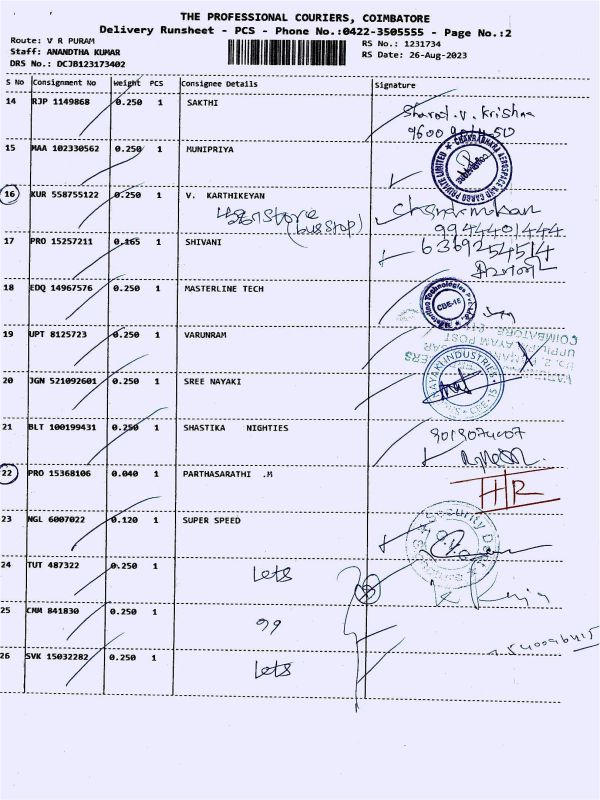 THE PROFESSIONAL COURIERS, COIMBATORE
Delivery Runsheet - PCS - Phone No.:0422-3505555 - Page No.:2
Route: V R PURAM
RS No.: 1231734
Staff: ANANDTHA KUMAR
RS Date: 26-Aug-2023
DRS No.: DCJB123173402
S No Consignment No Weight PCS Consignee Details Signature
14 RJP 1149868 0.250 1 SAKTHI
15 MAA 102330562 0.250 1 MUNIPRIYA
16 KUR 558755122 0.250 1 V. KARTHIKEYAN
store
(bus stop)
9944401444
17 PRO 15257211 0.165 1 SHIVANI
6369254514
18 EDQ 14967576 0.250 1 MASTERLINE TECH
CBE-15
19 UPT 8125723 0.250 1 VARUNRAM
20 JGN 521092601 0.250 1 SREE NAYAKI
21 BLT 100199431 0.250 1 SHASTIKA NIGHTIES
22 PRO 15368106 0.040 1 PARTHASARATHI .M
HR
23 NGL 6007022 0.120 1 SUPER SPEED
24 TUT 487322 0.250 1 Lets
25 CMM 841830 0.250 1 99
26 SVK 15032282 0.250 1 Lets